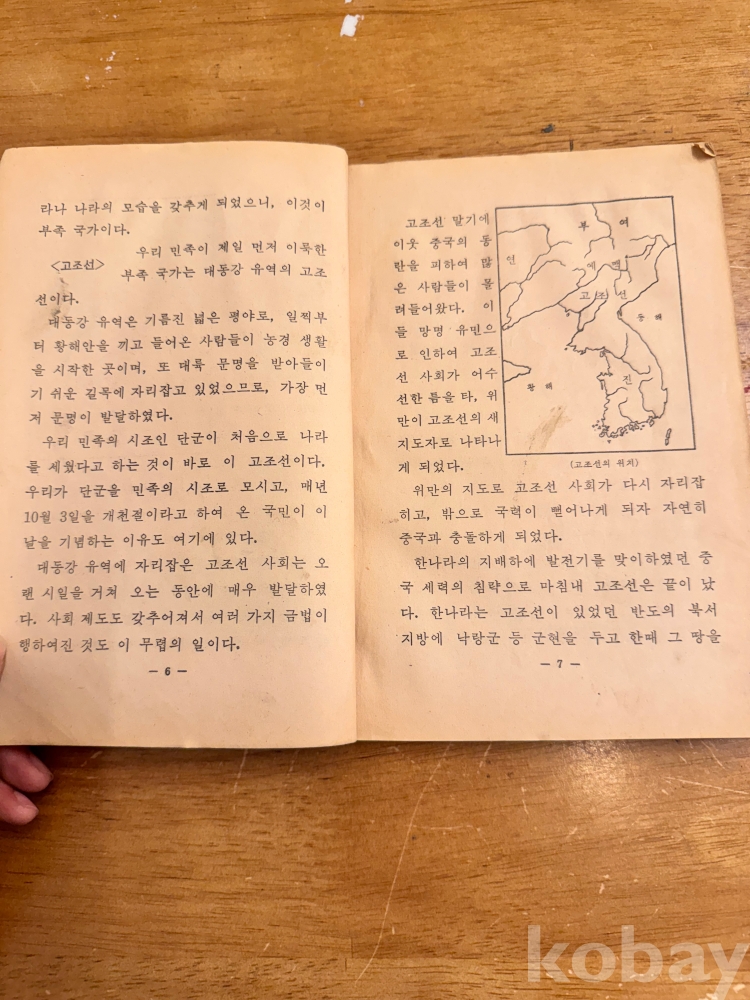 라나 나라의 모습을 갖추게 되었으니, 이것이
부족 국가이다.
<고조선>
우리 민족이 제일 먼저 이룩한
부족 국가는 대동강 유역의 고조
선이다.
대동강 유역은 기름진 넓은 평야로, 일찍부
터 황해안을 끼고 들어온 사람들이 농경 생활
을 시작한 곳이며, 또 대륙 문명을 받아들이
기 쉬운 길목에 자리잡고 있었으므로, 가장 먼
저 문명이 발달하였다.
우리 민족의 시조인 단군이 처음으로 나라
를 세웠다고 하는 것이 바로 이 고조선이다.
우리가 단군을 민족의 시조로 모시고, 매년
10월 3일을 개천절이라고 하여 온 국민이 이
날을 기념하는 이유도 여기에 있다.
대동강 유역에 자리잡은 고조선 사회는 오
랜 시일을 거쳐 오는 동안에 매우 발달하였
다. 사회 제도도 갖추어져서 여러 가지 금법이
행하여진 것도 이 무렵의 일이다.
— 6 —
고조선 말기에
이웃 중국의 동
란을 피하여 많
은 사람들이 몰
려들어왔다. 이
들 망명 유민으
로 인하여 고조
선 사회가 어수
선한 틈을 타, 위
만이 고조선의 새
지도자로 나타나
게 되었다.
부 여
연
예 맥
고 조 선
동 해
황 해
진
(고조선의 위치)
위만의 지도로 고조선 사회가 다시 자리잡
히고, 밖으로 국력이 뻗어나게 되자 자연히
중국과 충돌하게 되었다.
한나라의 지배하에 발전기를 맞이하였던 중
국 세력의 침략으로 마침내 고조선은 끝이 났
다. 한나라는 고조선이 있었던 반도의 북서
지방에 낙랑군 등 군현을 두고 한때 그 땅을
— 7 —
kobay